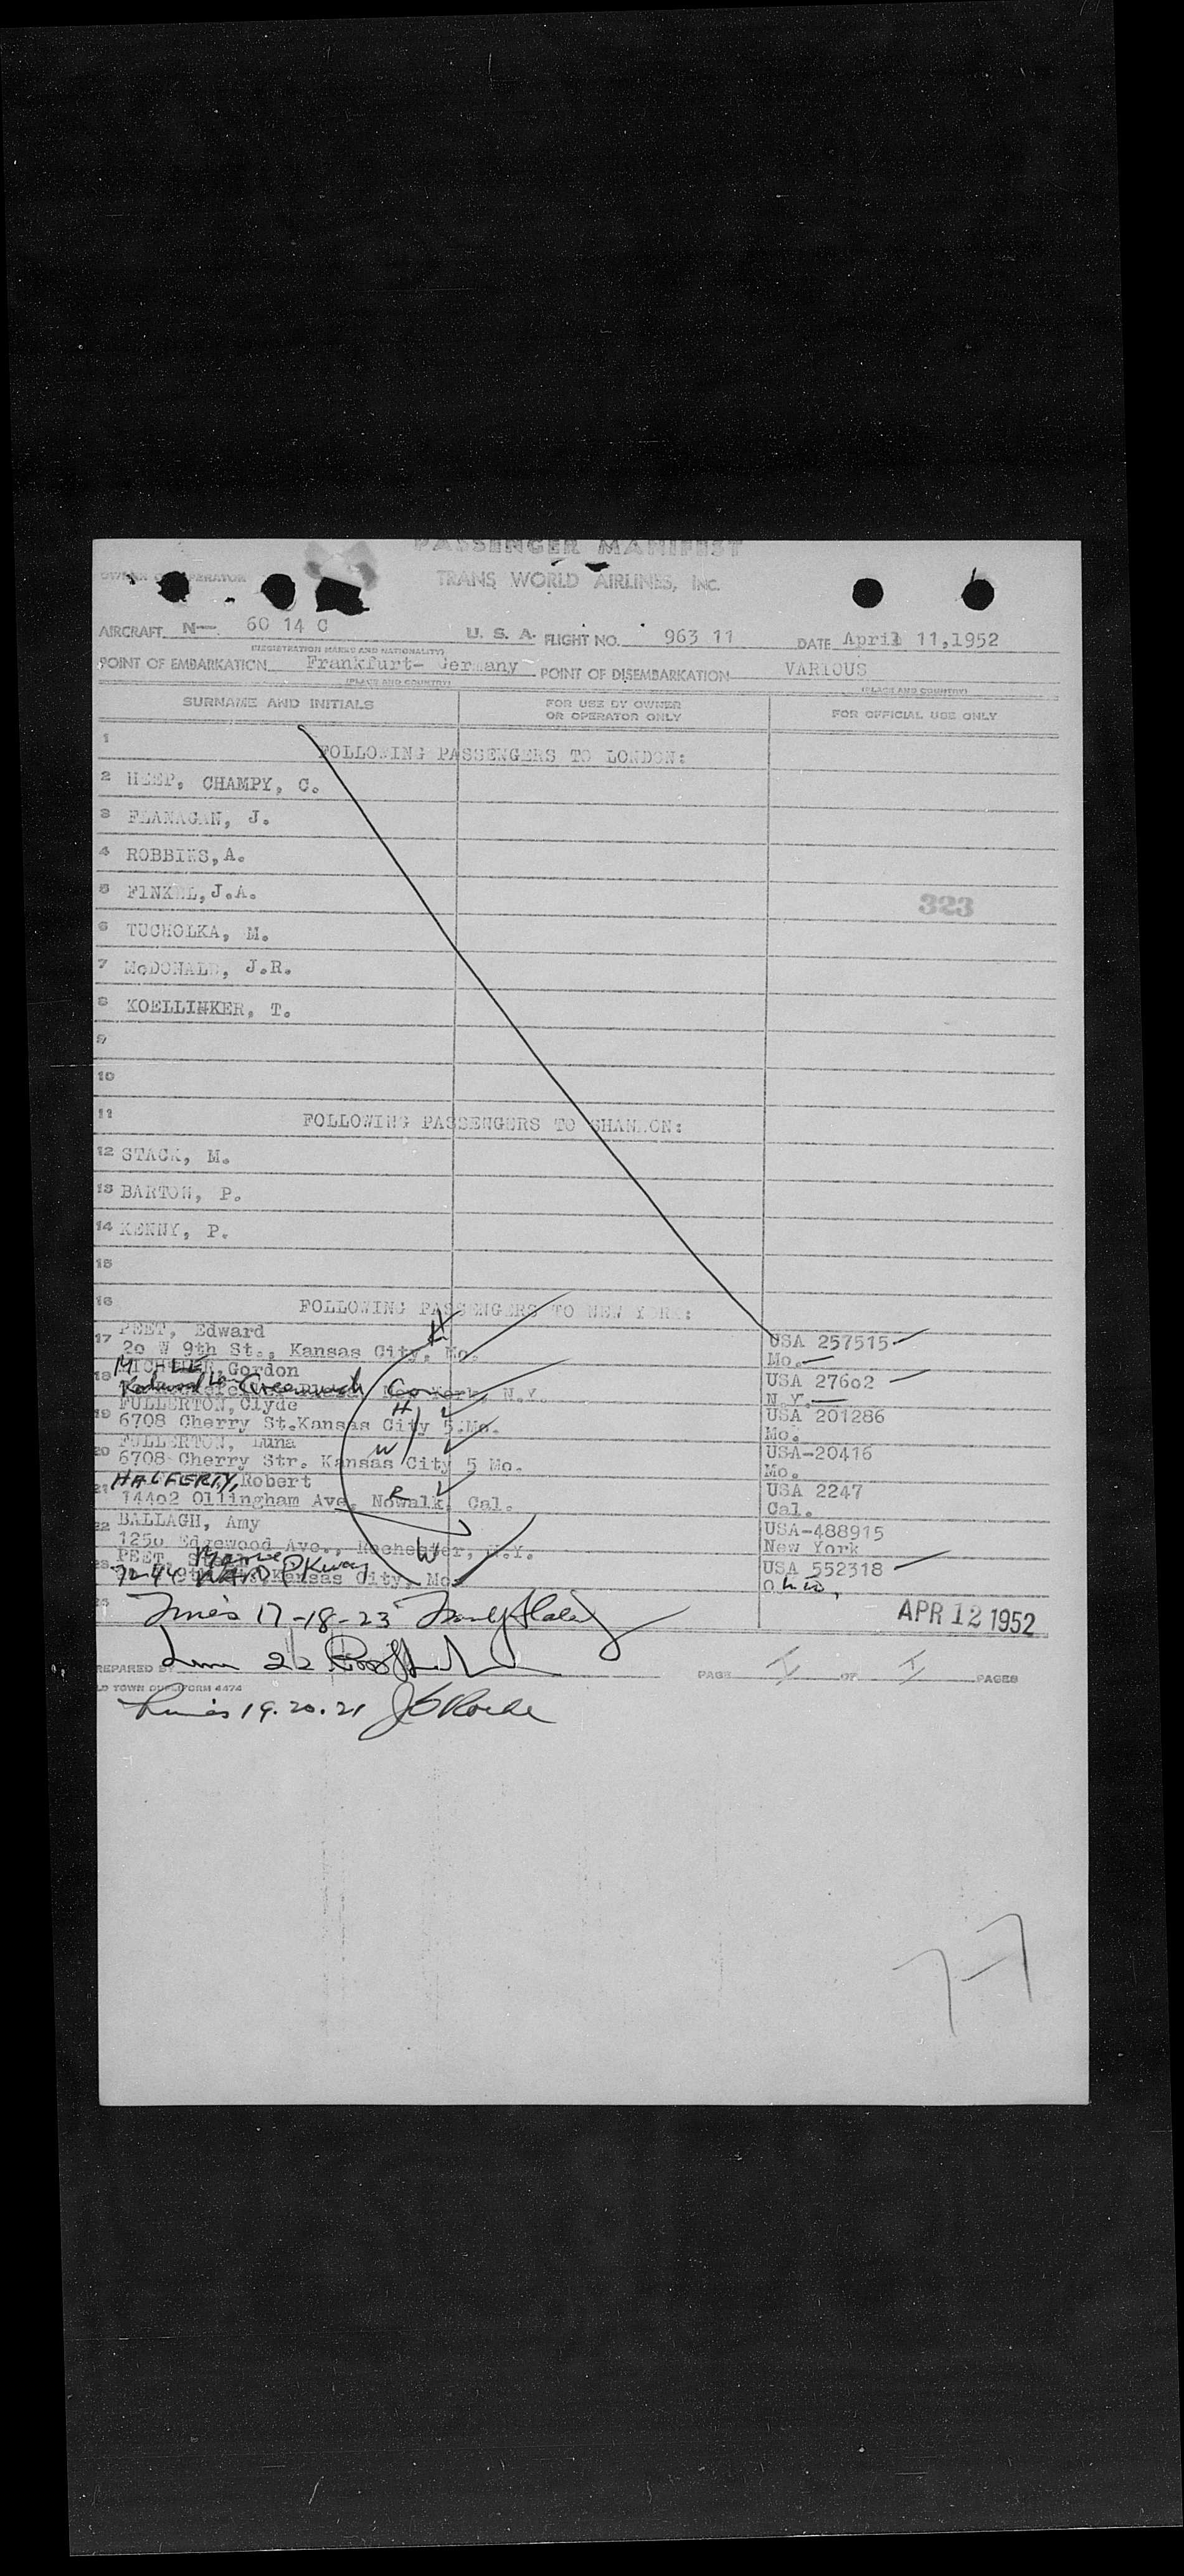 PASSENGER MANIFEST
OWNER OR OPERATOR TRANS WORLD AIRLINES, INC.
AIRCRAFT N— 60 14 C U. S. A. FLIGHT NO. 963 11 DATE April 11,1952
(REGISTRATION MARKS AND NATIONALITY)
POINT OF EMBARKATION Frankfurt- Germany POINT OF DISEMBARKATION VARIOUS
(PLACE AND COUNTRY) (PLACE AND COUNTRY)
SURNAME AND INITIALS FOR USE BY OWNER OR OPERATOR ONLY FOR OFFICIAL USE ONLY
1 FOLLOWING PASSENGERS TO LONDON:
2 HEEP, CHAMPY, C.
3 FLANAGAN, J.
4 ROBBINS,A.
5 FINKEL,J.A.
323
6 TUCHOLKA, M.
7 McDONALD, J.R.
8 KOELLINKER, T.
9
10
11 FOLLOWING PASSENGERS TO SHANNON:
12 STACK, M.
13 BARTON, P.
14 KENNY, P.
15
16 FOLLOWING PASSENGERS TO NEW YORK:
17 PEET, Edward USA 257515
20 W 9th St., Kansas City, Mo. Mo.
18 Gordon USA 27602
Greenwich New York, N.Y. N.Y.
19 FULLERTON,Clyde H USA 201286
6708 Cherry St.Kansas City 5.Mo. Mo.
20 FULLERTON, Luna W USA-20416
6708 Cherry Str. Kansas City 5 Mo. Mo.
21 HALFERTY, Robert R USA 2247
14402 Ollingham Ave. Nowalk, Cal. Cal.
22 BALLAGH, Amy USA-488915
1250 Edgewood Ave., Rochester, N.Y. W New York
23 PEET, USA 552318
WARD PKway Kansas City, Mo. Ohio,
25 17-18-23 APR 12 1952
PREPARED BY 22 PAGE I OF I PAGES
OLD TOWN DUPLIFORM 4474
19.20.21
7-7